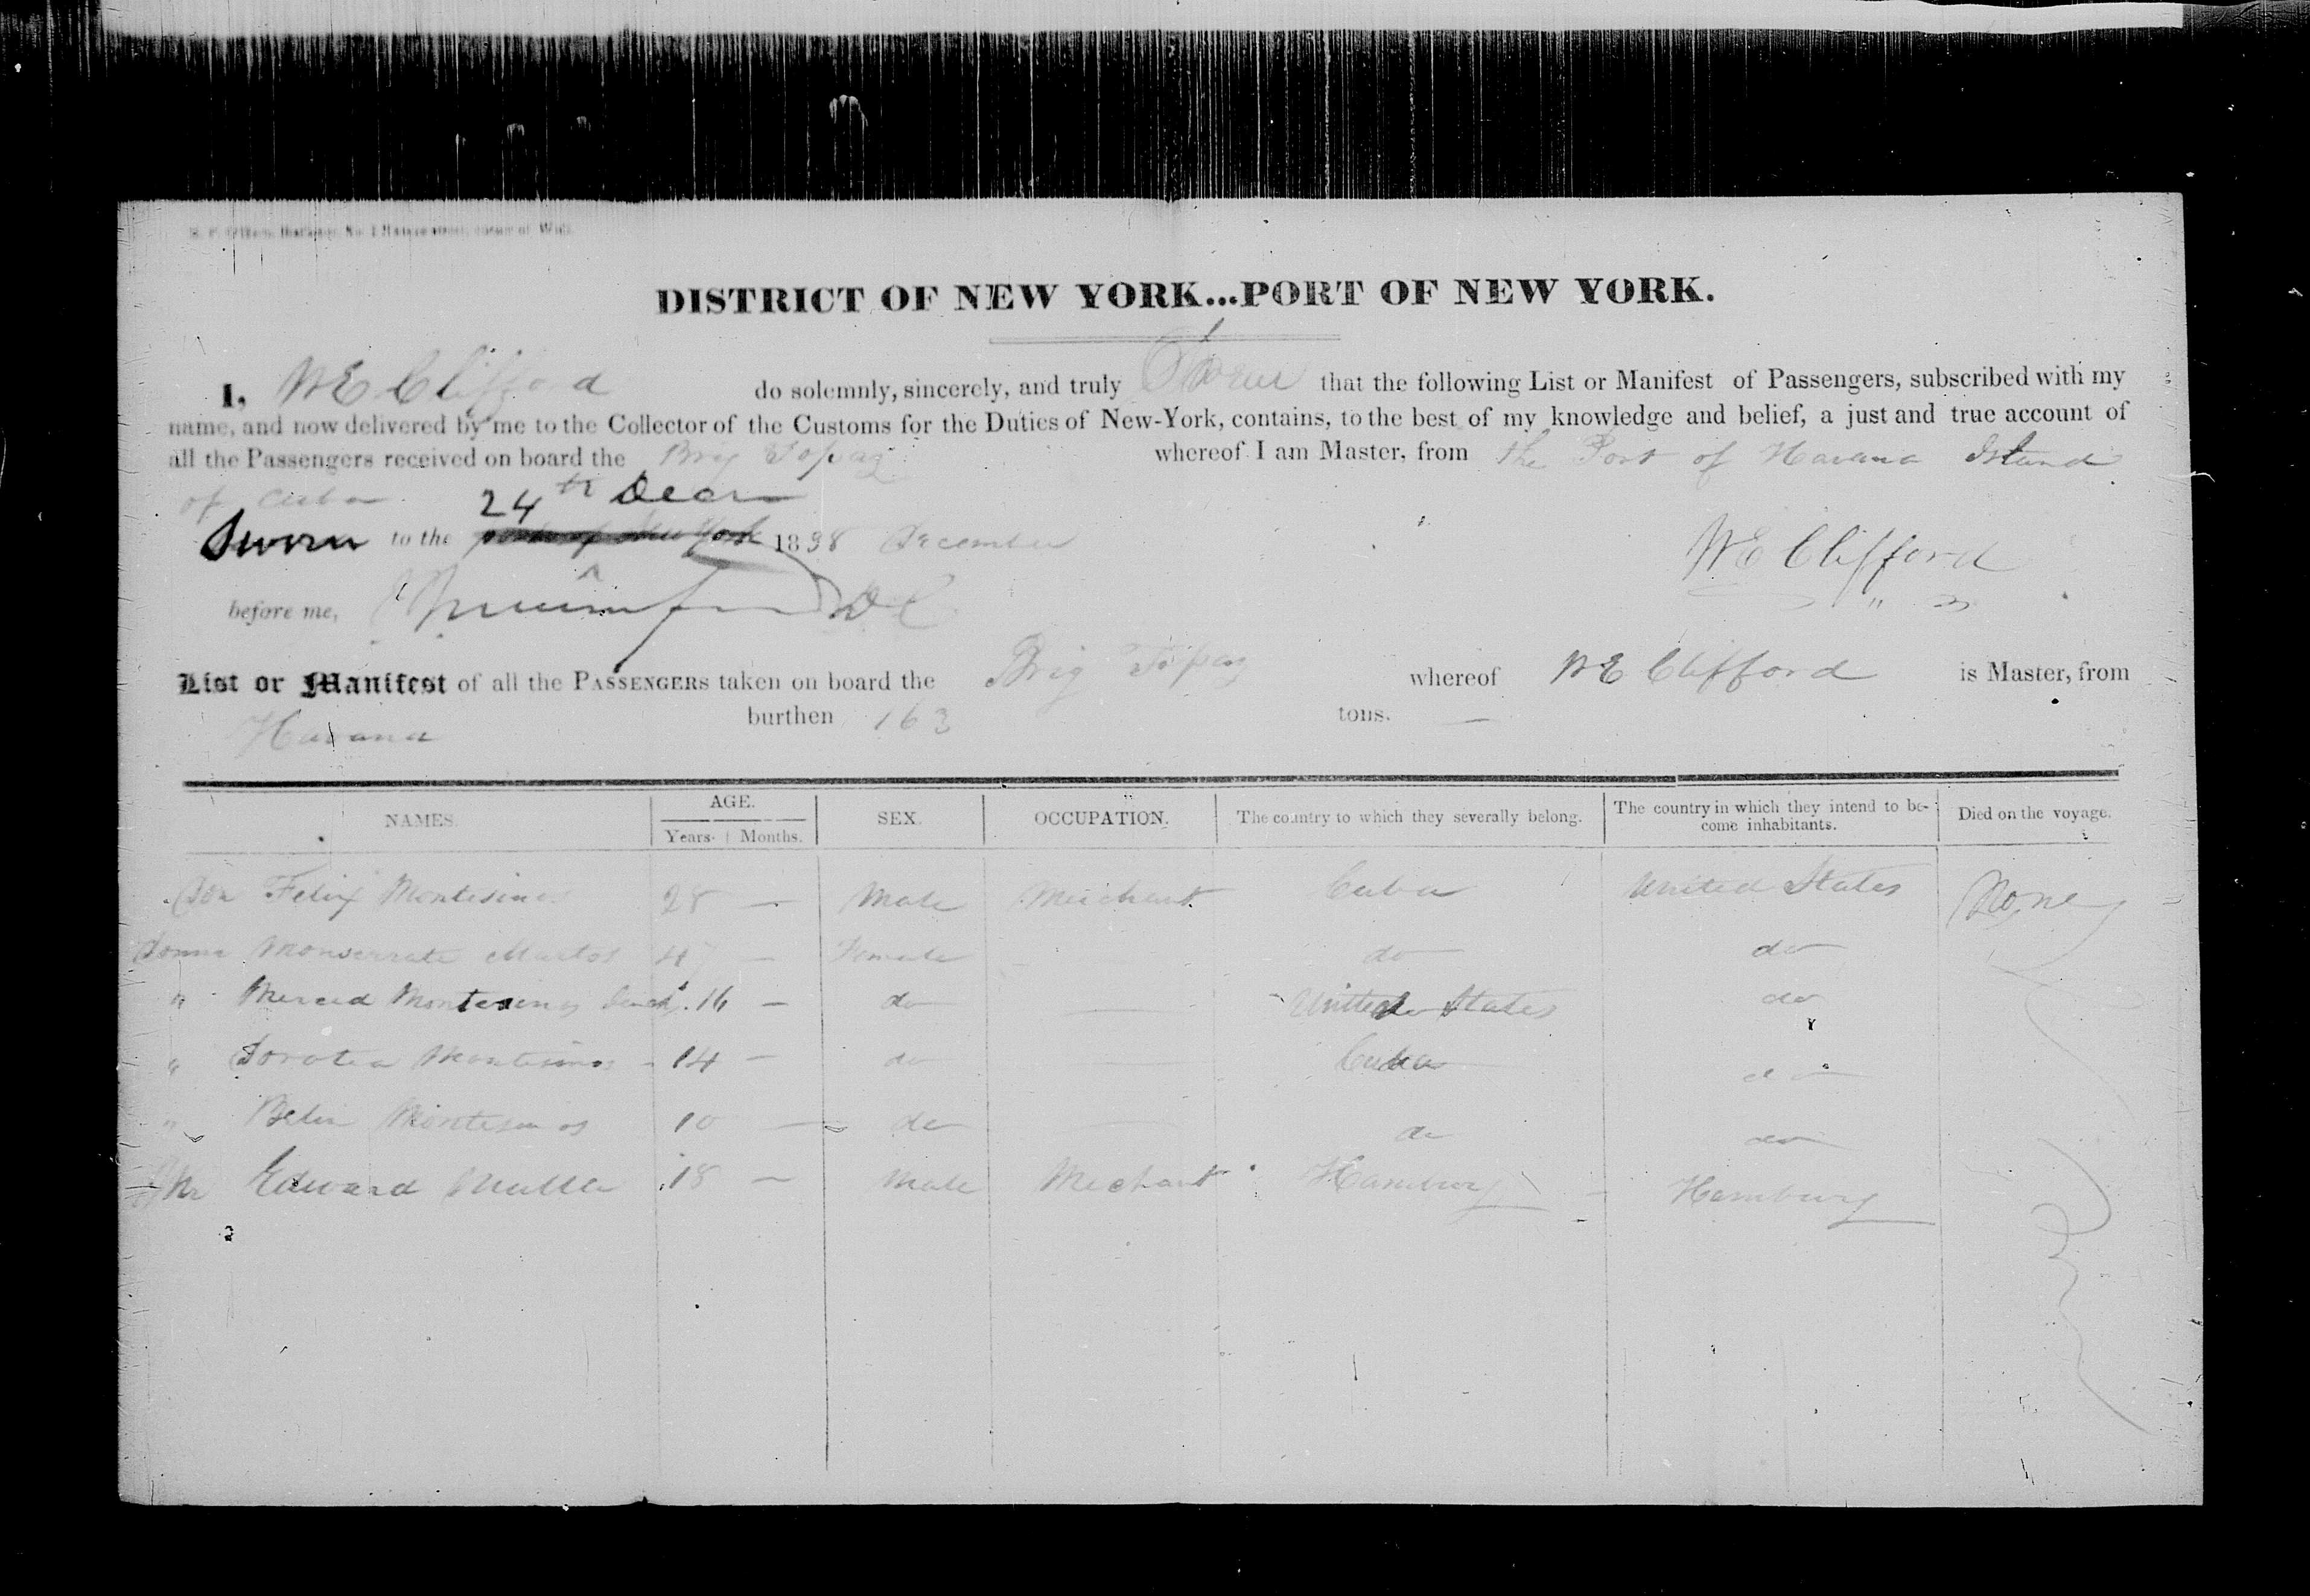 DISTRICT OF NEW YORK...PORT OF NEW YORK.
I, W E Clifford do solemnly, sincerely, and truly Swear that the following List or Manifest of Passengers, subscribed with my
name, and now delivered by me to the Collector of the Customs for the Duties of New-York, contains, to the best of my knowledge and belief, a just and true account of
all the Passengers received on board the Brig Topaz whereof I am Master, from the Port of Havana Island
of Cuba
24th Decr
Sworn to the 1838 December
W E Clifford
before me, D C
List or Manifest of all the PASSENGERS taken on board the Brig Topaz whereof W E Clifford is Master, from
Havana burthen 163 tons.
NAMES. AGE. Years. Months. SEX. OCCUPATION. The country to which they severally belong. The country in which they intend to become inhabitants. Died on the voyage.
Don Felix Montesinos 28 — Male Merchant Cuba United States None
Donna Monserrate Martos — Female do do
" Merced Montesinos 16 — do — United States do
" Dorotea Montesinos - 14 — do — Cuba do
" Belen Montesinos 10 — do — do do
Mr Edward Muller 18 — Male Mechant Hamburg Hamburg